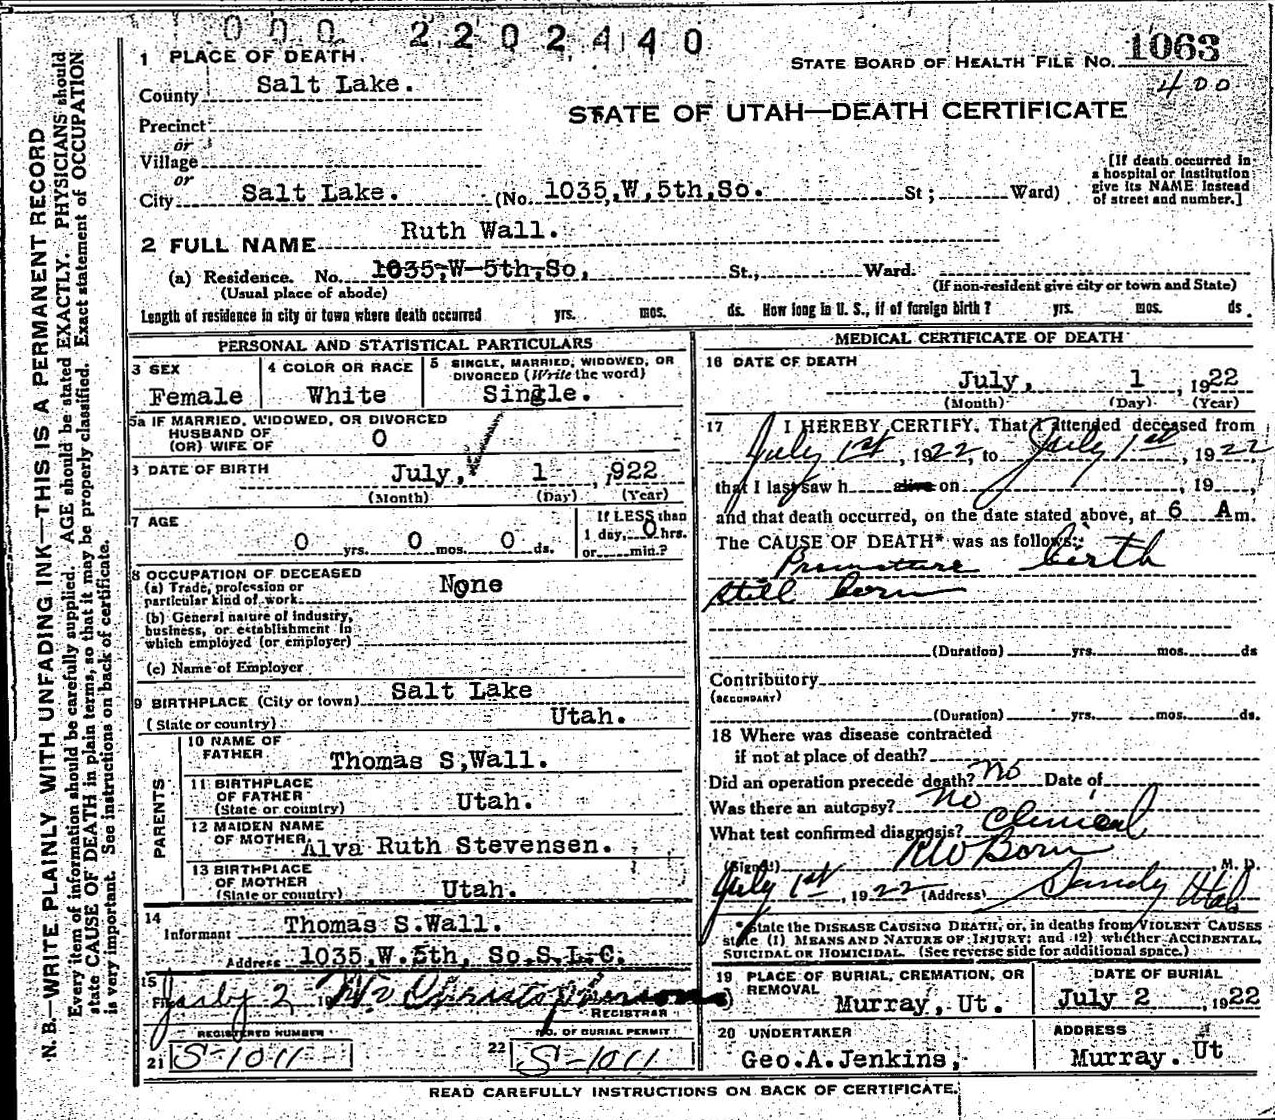 000 2202440
1 PLACE OF DEATH.
STATE BOARD OF HEALTH FILE NO. 1063
400
County Salt Lake.
STATE OF UTAH—DEATH CERTIFICATE
Precinct
or
Village
or
City Salt Lake. (No. 1035,W,5th,So. St; Ward)
[If death occurred in
a hospital or institution
give its NAME instead
of street and number.]
2 FULL NAME Ruth Wall.
(a) Residence. No. 1035,W-5th,So, St., Ward.
(Usual place of abode)
(If non-resident give city or town and State)
Length of residence in city or town where death occurred yrs. mos. ds. How long in U. S., if of foreign birth? yrs. mos. ds.
PERSONAL AND STATISTICAL PARTICULARS
3 SEX
Female
4 COLOR OR RACE
White
5 SINGLE, MARRIED, WIDOWED, OR
DIVORCED (Write the word)
Single.
5a IF MARRIED, WIDOWED, OR DIVORCED
HUSBAND OF
(OR) WIFE OF
0
6 DATE OF BIRTH
July, 1 ,922
(Month) (Day) (Year)
7 AGE
0 yrs. 0 mos. 0 ds.
If LESS than
1 day, 0 hrs.
or min.?
8 OCCUPATION OF DECEASED
(a) Trade, profession or
particular kind of work
None
(b) General nature of industry,
business, or establishment in
which employed (or employer)
(c) Name of Employer
9 BIRTHPLACE (City or town) Salt Lake
(State or country) Utah.
PARENTS
10 NAME OF
FATHER
Thomas S,Wall.
11 BIRTHPLACE
OF FATHER
(State or country)
Utah.
12 MAIDEN NAME
OF MOTHER
Alva Ruth Stevensen.
13 BIRTHPLACE
OF MOTHER
(State or country)
Utah.
14
Informant Thomas S.Wall.
Address 1035,W.5th, So,S.L.C.
15
July 2
REGISTRAR
REGISTERED NUMBER
21 S-1011
NO. OF BURIAL PERMIT
22 S-1011
MEDICAL CERTIFICATE OF DEATH
16 DATE OF DEATH
July, 1 , 1922
(Month) (Day) (Year)
17 I HEREBY CERTIFY, That I attended deceased from
July 1st, 1922, to July 1st, 1922
that I last saw h alive on , 19 ,
and that death occurred, on the date stated above, at 6 A m.
The CAUSE OF DEATH* was as follows:
Premature birth
still born
(Duration) yrs. mos. ds
Contributory
(SECONDARY)
(Duration) yrs. mos. ds.
18 Where was disease contracted
if not at place of death?
Did an operation precede death? no Date of
Was there an autopsy? no
What test confirmed diagnosis? Clinical
(Signed) , M. D.
July 1st, 1922 (Address) Sandy Utah
*State the DISEASE CAUSING DEATH, or, in deaths from VIOLENT CAUSES
state (1) MEANS AND NATURE OF INJURY; and (2) whether ACCIDENTAL,
SUICIDAL OR HOMICIDAL. (See reverse side for additional space.)
19 PLACE OF BURIAL, CREMATION, OR
REMOVAL
Murray, Ut.
DATE OF BURIAL
July 2 1922
20 UNDERTAKER
Geo.A.Jenkins,
ADDRESS
Murray. Ut
READ CAREFULLY INSTRUCTIONS ON BACK OF CERTIFICATE.
N. B.—WRITE PLAINLY WITH UNFADING INK—THIS IS A PERMANENT RECORD
Every item of information should be carefully supplied. AGE should be stated EXACTLY. PHYSICIANS should
state CAUSE OF DEATH in plain terms, so that it may be properly classified. Exact statement of OCCUPATION
is very important. See instructions on back of certificate.